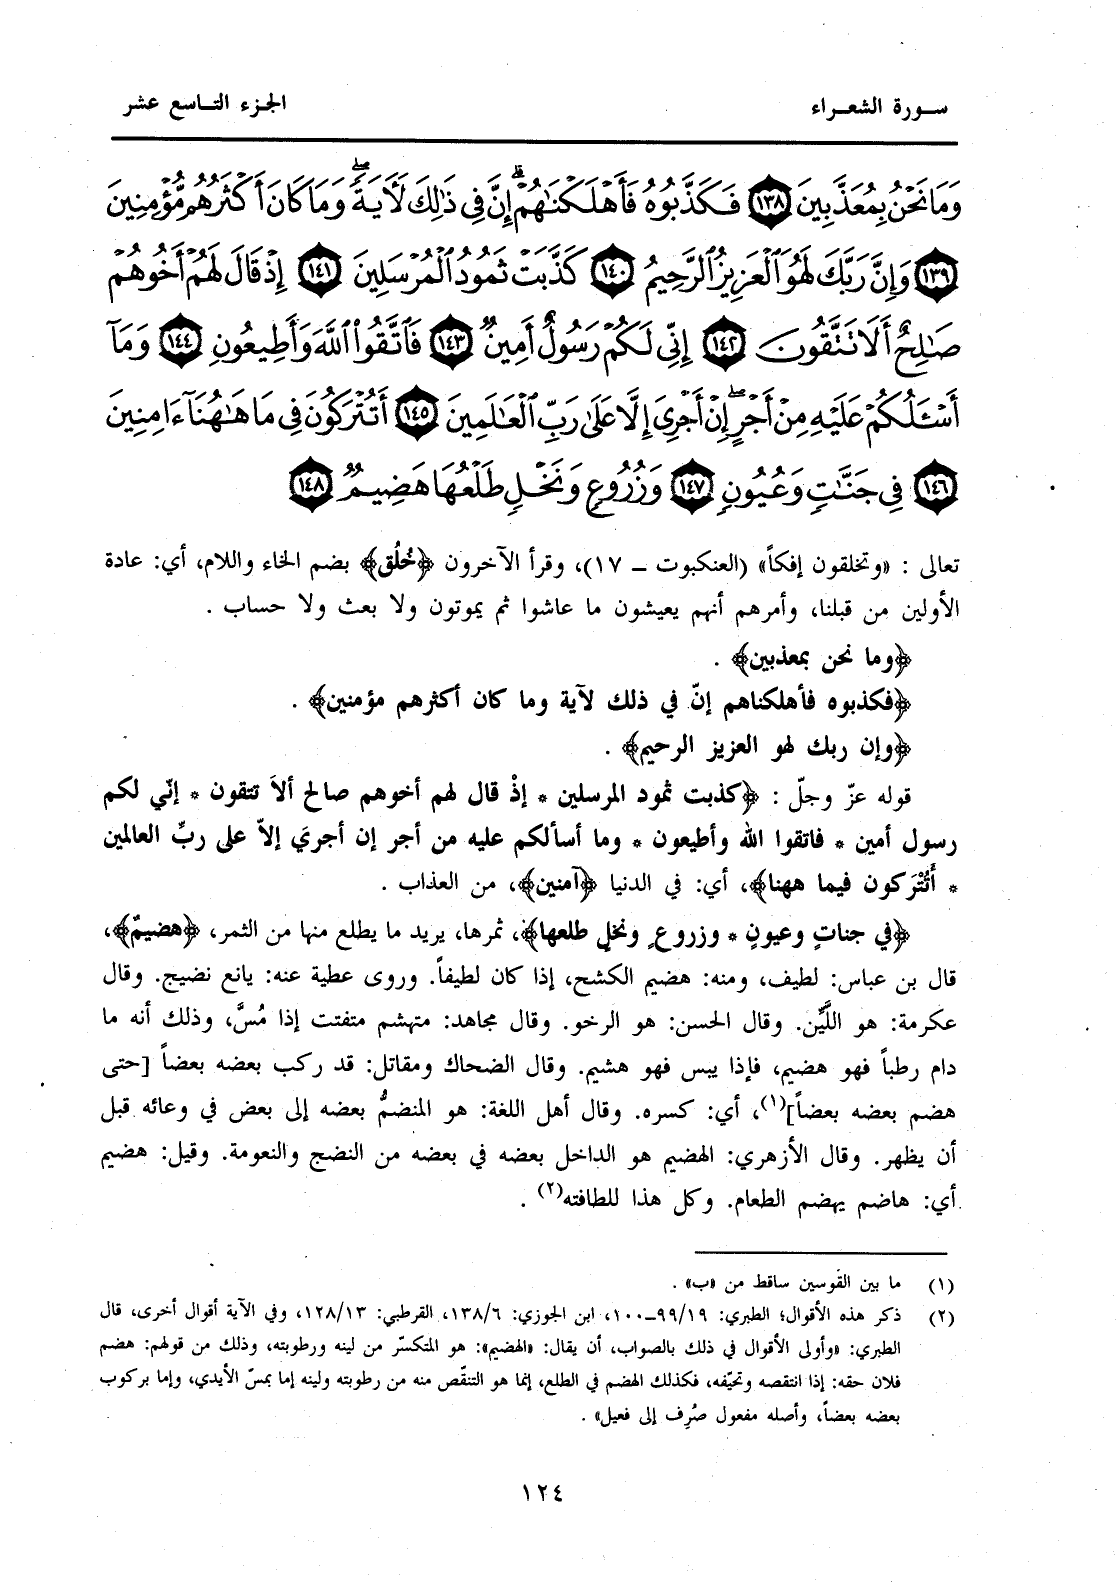 سورة الشعراء
الجزء التاسع عشر
وَمَا نَحْنُ بِمُعَذَّبِينَ ١٣٨ فَكَذَّبُوهُ فَأَهْلَكْنَٰهُمْ إِنَّ فِى ذَٰلِكَ لَأَيَةً وَمَا كَانَ أَكْثَرُهُم مُّؤْمِنِينَ
١٣٩ وَإِنَّ رَبَّكَ لَهُوَ ٱلْعَزِيزُ ٱلرَّحِيمُ ١٤٠ كَذَّبَتْ ثَمُودُ ٱلْمُرْسَلِينَ ١٤١ إِذْ قَالَ لَهُمْ أَخُوهُمْ
صَٰلِحٌ أَلَا تَتَّقُونَ ١٤٢ إِنِّى لَكُمْ رَسُولٌ أَمِينٌ ١٤٣ فَٱتَّقُوا۟ ٱللَّهَ وَأَطِيعُونِ ١٤٤ وَمَآ
أَسْـَٔلُكُمْ عَلَيْهِ مِنْ أَجْرٍ إِنْ أَجْرِىَ إِلَّا عَلَىٰ رَبِّ ٱلْعَٰلَمِينَ ١٤٥ أَتُتْرَكُونَ فِى مَا هَٰهُنَآ ءَامِنِينَ
١٤٦ فِى جَنَّٰتٍ وَعُيُونٍ ١٤٧ وَزُرُوعٍ وَنَخْلٍ طَلْعُهَا هَضِيمٌ ١٤٨
تعالى : «وتخلقون إفكاً» (العنكبوت ــ ١٧)، وقرأ الآخرون ﴿خُلُق﴾ بضم الخاء واللام، أي: عادة
الأولين من قبلنا، وأمرهم أنهم يعيشون ما عاشوا ثم يموتون ولا بعث ولا حساب .
﴿وما نحن بمعذبين﴾ .
﴿فكذبوه فأهلكناهم إنّ في ذلك لآية وما كان أكثرهم مؤمنين﴾ .
﴿وإن ربك لهو العزيز الرحيم﴾ .
قوله عزّ وجلّ : ﴿كذبت ثمود المرسلين * إذْ قال لهم أخوهم صالح ألاَ تتقون * إنّي لكم
رسول أمين * فاتقوا الله وأطيعون * وما أسألكم عليه من أجر إن أجريَ إلاّ على ربِّ العالمين
* أَتُتْرَكون فيما ههنا﴾، أي: في الدنيا ﴿آمنين﴾، من العذاب .
﴿في جناتٍ وعيونٍ * وزروعٍ ونخلٍ طلعها﴾، ثمرها، يريد ما يطلع منها من الثمر، ﴿هضيمٌ﴾،
قال بن عباس: لطيف، ومنه: هضيم الكشح، إذا كان لطيفاً. وروى عطية عنه: يانع نضيج. وقال
عكرمة: هو اللَّيِّن. وقال الحسن: هو الرخو. وقال مجاهد: متهشم متفتت إذا مُسَّ، وذلك أنه ما
دام رطباً فهو هضيم، فإذا يبس فهو هشيم. وقال الضحاك ومقاتل: قد ركب بعضه بعضاً [حتى
هضم بعضه بعضاً](١)، أي: كسره. وقال أهل اللغة: هو المنضمُّ بعضه إلى بعض في وعائه قبل
أن يظهر. وقال الأزهري: الهضيم هو الداخل بعضه في بعضه من النضج والنعومة. وقيل: هضيم
أي: هاضم يهضم الطعام. وكل هذا للطافته(٢) .
(١) ما بين القوسين ساقط من «ب» .
(٢) ذكر هذه الأقوال؛ الطبري: ٩٩/١٩ــ١٠٠، ابن الجوزي: ١٣٨/٦، القرطبي: ١٢٨/١٣، وفي الآية أقوال أخرى، قال
الطبري: «وأولى الأقوال في ذلك بالصواب، أن يقال: «الهضيم»: هو المتكسّر من لينه ورطوبته، وذلك من قولهم: هضم
فلان حقه: إذا انتقصه وتحيّفه، فكذلك الهضم في الطلع، إنما هو التنقّص منه من رطوبته ولينه إما بمسّ الأيدي، وإما بركوب
بعضه بعضاً، وأصله مفعول صُرِف إلى فعيل» .
١٢٤